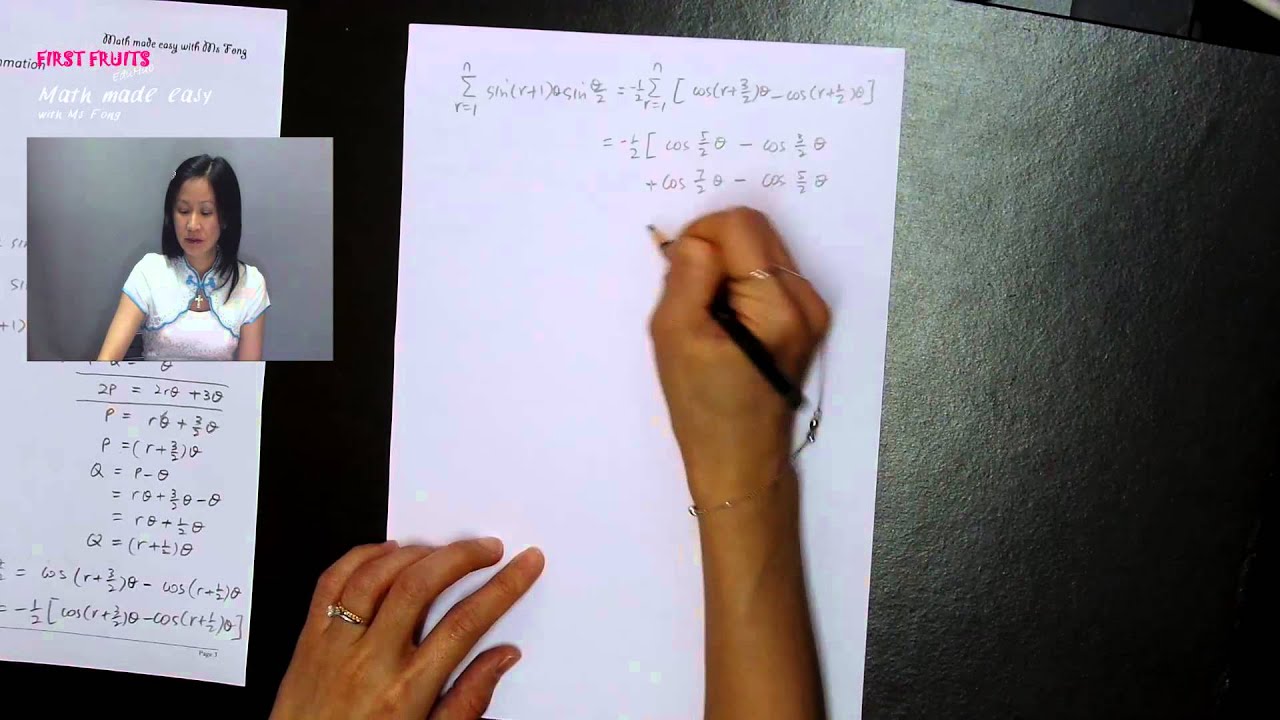 Math made easy with Ms Fong
mmation
FIRST FRUITS
EduHub
Math made easy
with Ms Fong
sin
sin
+1)
Q = θ
2P = 2rθ + 3θ
P = rθ + 3/2 θ
P = (r + 3/2)θ
Q = P - θ
= rθ + 3/2 θ - θ
= rθ + 1/2 θ
Q = (r + 1/2)θ
= cos(r + 3/2)θ - cos(r + 1/2)θ
= -1/2 [cos(r + 3/2)θ - cos(r + 1/2)θ]
Page 3
n Σ r=1 sin(r+1)θ sin θ/2 = -1/2 n Σ r=1 [cos(r + 3/2)θ - cos(r + 1/2)θ]
= -1/2 [cos 5/2 θ - cos 3/2 θ
+ cos 7/2 θ - cos 5/2 θ